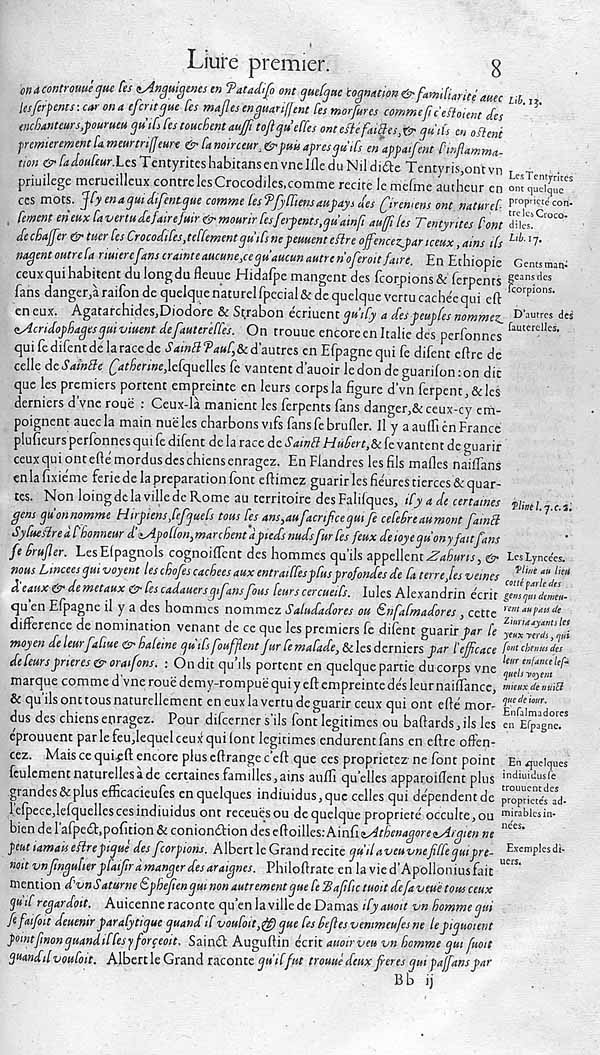 Liure premier. 8
on a controuué que les Anguigenes en Patadiso ont quelque cognation & familiarité auec
les serpents: car on a escrit que les masles en guarissent les morsures comme si c'estoient des
enchanteurs, pourueu qu'ils les touchent aussi tost qu'elles ont esté faictes, & qu'ils en ostent
premierement la meurtrisseure & la noirceur, & puis apres qu'ils en appaisent l'inflamma-
tion & la douleur. Les Tentyrites habitans en vne Isle du Nil dicte Tentyris, ont vn
priuilege merueilleux contre les Crocodiles, comme recite le mesme autheur en
ces mots. Il y en a qui disent que comme les Psylliens au pays des Cireniens ont naturel-
lement en eux la vertu de faire fuir & mourir les serpents, qu'ainsi aussi les Tentyrites l'ont
de chasser & tuer les Crocodiles, tellement qu'ils ne peuuent estre offencez par iceux, ains ils
nagent outre la riuiere sans crainte aucune, ce qu'aucun autre n'oseroit faire. En Ethiopie
ceux qui habitent du long du fleuue Hidaspe mangent des scorpions & serpents
sans danger, à raison de quelque naturel special & de quelque vertu cachée qui est
en eux. Agatarchides, Diodore & Strabon écriuent qu'il y a des peuples nommez
Acridophages qui viuent de sauterelles. On trouue encore en Italie des personnes
qui se disent de la race de Sainct Paul, & d'autres en Espagne qui se disent estre de
celle de Saincte Catherine, lesquelles se vantent d'auoir le don de guarison: on dit
que les premiers portent empreinte en leurs corps la figure d'vn serpent, & les
derniers d'vne rouë: Ceux-là manient les serpents sans danger, & ceux-cy em-
poignent auec la main nuë les charbons vifs sans se brusler. Il y a aussi en France
plusieurs personnes qui se disent de la race de Sainct Hubert, & se vantent de guarir
ceux qui ont esté mordus des chiens enragez. En Flandres les fils masles naissans
en la sixiéme ferie de la preparation sont estimez guarir les fiéures tierces & quar-
tes. Non loing de la ville de Rome au territoire des Falisques, il y a de certaines
gens qu'on nomme Hirpiens, lesquels tous les ans, au sacrifice qui se celebre au mont sainct
Syluestre à l'honneur d'Apollon, marchent à pieds nuds sur les feux de ioye qu'on y fait sans
se brusler. Les Espagnols cognoissent des hommes qu'ils appellent Zahuris, &
nous Lincees qui voyent les choses cachees aux entrailles plus profondes de la terre, les veines
d'eaux & de metaux & les cadauers gisans sous leurs cercueils. Iules Alexandrin écrit
qu'en Espagne il y a des hommes nommez Saludadores ou Ensalmadores, cette
difference de nomination venant de ce que les premiers se disent guarir par le
moyen de leur saliue & haleine qu'ils soufflent sur le malade, & les derniers par l'efficace
de leurs prieres & oraisons. : On dit qu'ils portent en quelque partie du corps vne
marque comme d'vne rouë demy-rompuë qui y est empreinte dés leur naissance,
& qu'ils ont tous naturellement en eux la vertu de guarir ceux qui ont esté mor-
dus des chiens enragez. Pour discerner s'ils sont legitimes ou bastards, ils les
éprouuent par le feu, lequel ceux qui sont legitimes endurent sans en estre offen-
cez. Mais ce qui est encore plus estrange c'est que ces proprietez ne sont point
seulement naturelles à de certaines familles, ains aussi qu'elles apparoissent plus
grandes & plus efficacieuses en quelques indiuidus, que celles qui dépendent de
l'espece, lesquelles ces indiuidus ont receuës ou de quelque proprieté occulte, ou
bien de l'aspect, position & conionction des estoilles: Ainsi Athenagore Argien ne
peut iamais estre piqué des scorpions. Albert le Grand recite qu'il a veu vne fille qui pre-
noit vn singulier plaisir à manger des araignes. Philostrate en la vie d'Apollonius fait
mention d'vn Saturne Ephesien qui non autrement que le Basilic tuoit de sa veuë tous ceux
qu'il regardoit. Auicenne raconte qu'en la ville de Damas il y auoit vn homme qui
se faisoit deuenir paralytique quand il vouloit, & que les bestes venimeuses ne le piquoient
point sinon quand il les y forçeoit. Sainct Augustin écrit auoir veu vn homme qui suoit
quand il vouloit. Albert le Grand raconte qu'il fut trouué deux freres qui passans par
Bb ij
Lib. 13.
Les Tentyrites
ont quelque
proprieté con-
tre les Croco-
diles.
Lib. 17.
Gents man-
geans des
scorpions.
D'autres des
sauterelles.
Pline l. 7. c. 2.
Les Lyncées.
Pline au lieu
cotté parle des
gens qui demeu-
rent au pais de
Ziuria ayants les
yeux verds, qui
sont chenus des
leur enfance les-
quels voyent
mieux de nuict
que de iour.
Ensalmadores
en Espagne.
En quelques
indiuidus se
trouuent des
proprietés ad-
mirables in-
nées.
Exemples di-
uers.